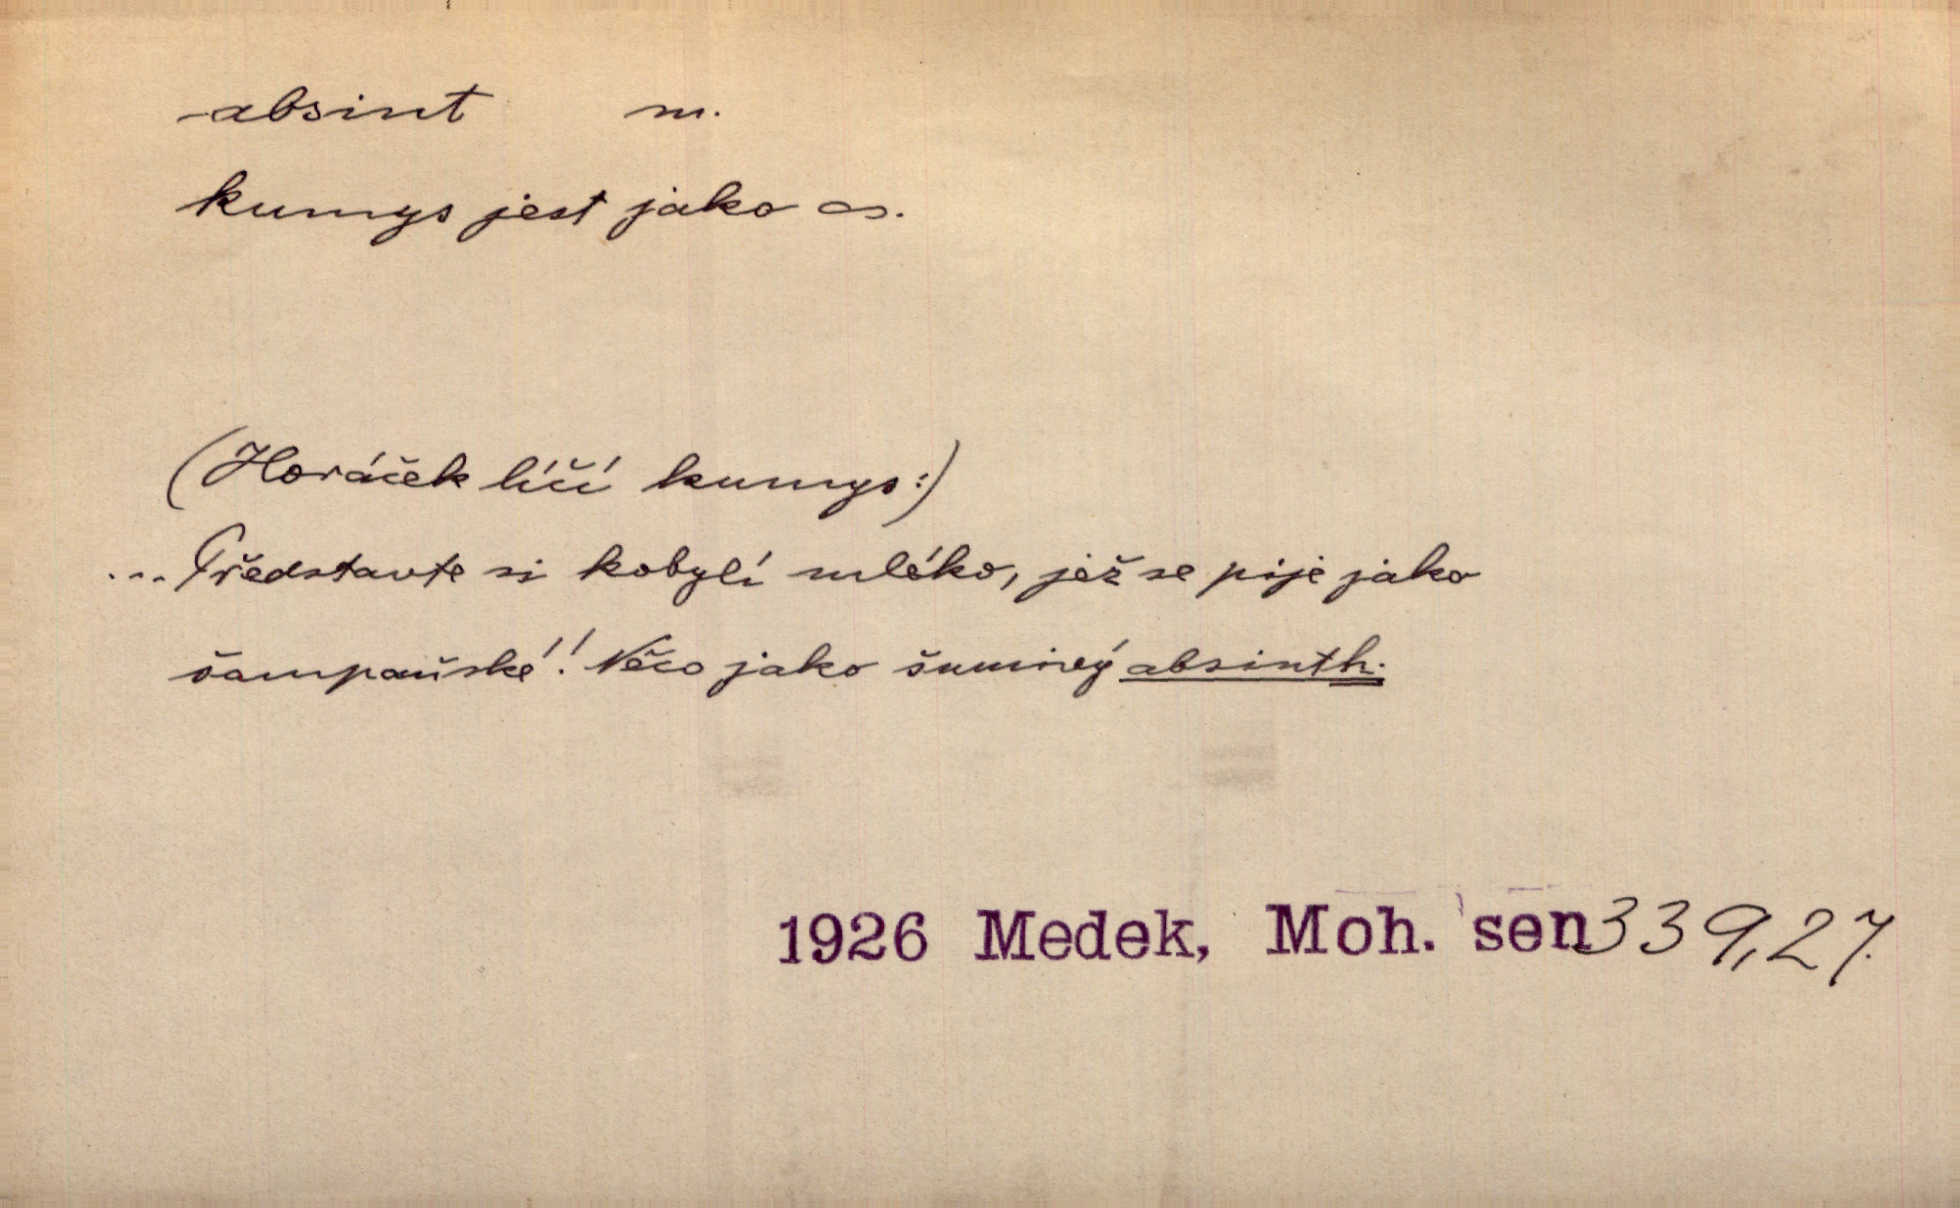 absint m.
kumys jest jako a.
(Horáček líčí kumys:)
... Představte si kobylí mléko, jež se pije jako
šampaňské! Něco jako šumivý absinth.
1926 Medek, Moh. sen 339,27.